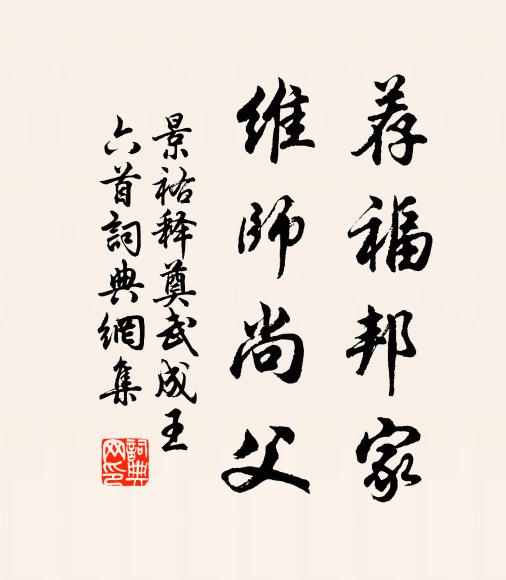 荐福邦家
维师尚父
景祐释奠武成王
六首詞典網集
詞典
网印